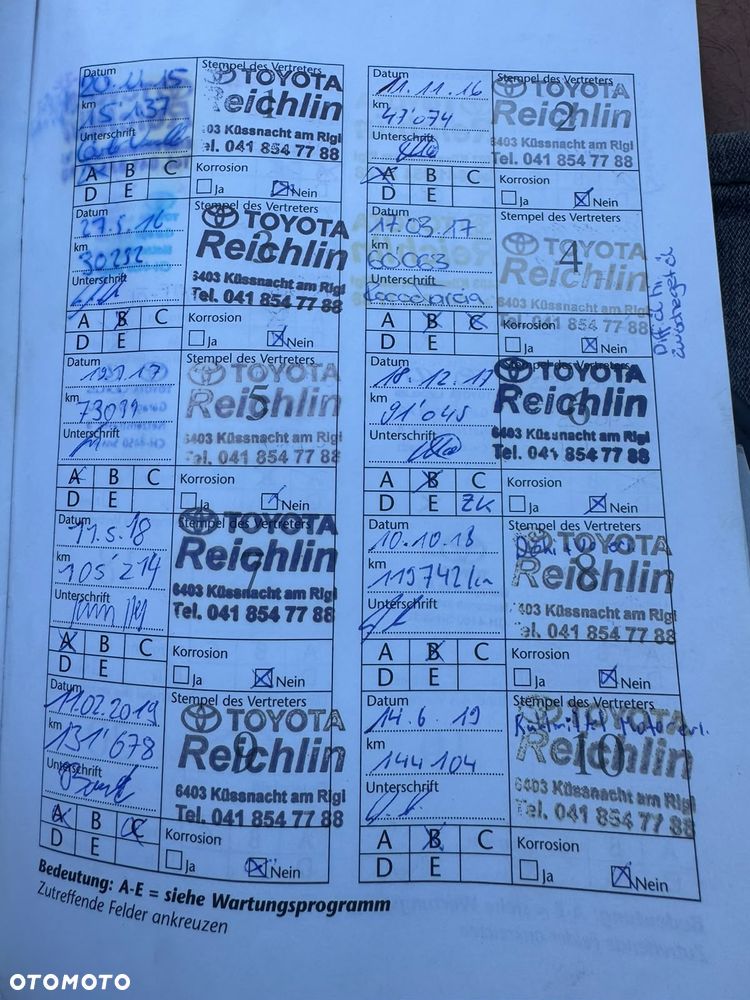 Datum
20.11.15
km
15'137
Unterschrift
Stempel des Vertreters
1
TOYOTA
Reichlin
6403 Küssnacht am Rigi
Tel. 041 854 77 88
A B C
D E
Korrosion
Ja Nein
Datum
11.11.16
km
47074
Unterschrift
Stempel des Vertreters
2
TOYOTA
Reichlin
6403 Küssnacht am Rigi
Tel. 041 854 77 88
A B C
D E
Korrosion
Ja Nein
Datum
27.5.16
km
30252
Unterschrift
Stempel des Vertreters
TOYOTA
Reichlin
6403 Küssnacht am Rigi
Tel. 041 854 77 88
A B C
D E
Korrosion
Ja Nein
Datum
17.03.17
km
60063
Unterschrift
Stempel des Vertreters
4
TOYOTA
Reichlin
6403 Küssnacht am Rigi
Tel. 041 854 77 88
A B C
D E
Korrosion
Ja Nein
Datum
km
Unterschrift
Stempel des Vertreters
5
TOYOTA
Reichlin
6403 Küssnacht am Rigi
Tel. 041 854 77 88
A B C
D E
Korrosion
Ja Nein
Datum
18.12.17
km
91'045
Unterschrift
Stempel des Vertreters
6
TOYOTA
Reichlin
6403 Küssnacht am Rigi
Tel. 041 854 77 88
A B C
D E ZK
Korrosion
Ja Nein
Datum
11.5.18
km
105'214
Unterschrift
Stempel des Vertreters
7
TOYOTA
Reichlin
6403 Küssnacht am Rigi
Tel. 041 854 77 88
A B C
D E
Korrosion
Ja Nein
Datum
10.10.18
km
119742km
Unterschrift
Stempel des Vertreters
8
TOYOTA
Reichlin
6403 Küssnacht am Rigi
Tel. 041 854 77 88
A B C
D E
Korrosion
Ja Nein
Datum
11.02.2019
km
131'678
Unterschrift
Stempel des Vertreters
9
TOYOTA
Reichlin
6403 Küssnacht am Rigi
Tel. 041 854 77 88
A B C
D E
Korrosion
Ja Nein
Datum
14.6.19
km
144104
Unterschrift
Stempel des Vertreters
10
TOYOTA
Reichlin
6403 Küssnacht am Rigi
Tel. 041 854 77 88
A B C
D E
Korrosion
Ja Nein
Bedeutung: A-E = siehe Wartungsprogramm
Zutreffende Felder ankreuzen
OTOMOTO